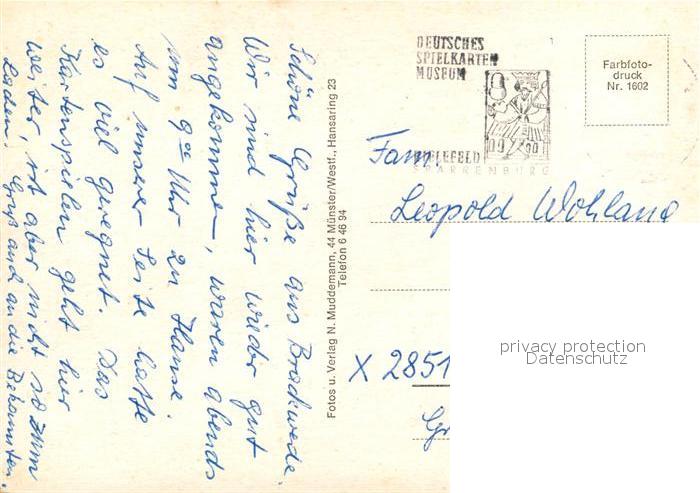 Schöne Grüße aus Brackwede.
Wir sind hier wieder gut
angekommen, waren abends
um 9⁰⁰ Uhr zu Hause.
Auf unserer Seite hatte
es viel geregnet. Das
Kartenspielen geht hier
weiter, ist aber nicht so zum
Laden. Gruß auch an die Bekannten.
Fotos u. Verlag N. Muddemann, 44 Münster/Westf., Hansaring 23
Telefon 6 46 94
DEUTSCHES
SPIELKARTEN
MUSEUM
BIELEFELD
SPARRENBURG
Farbfoto-
druck
Nr. 1602
Fam.
Leopold Wohland
X 2851
privacy protection
Datenschutz